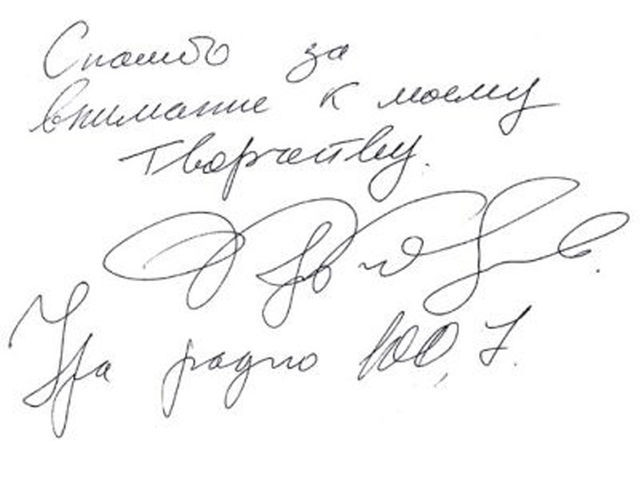 Спасибо за
внимание к моему
творчеству.
Ура радио 100,7.